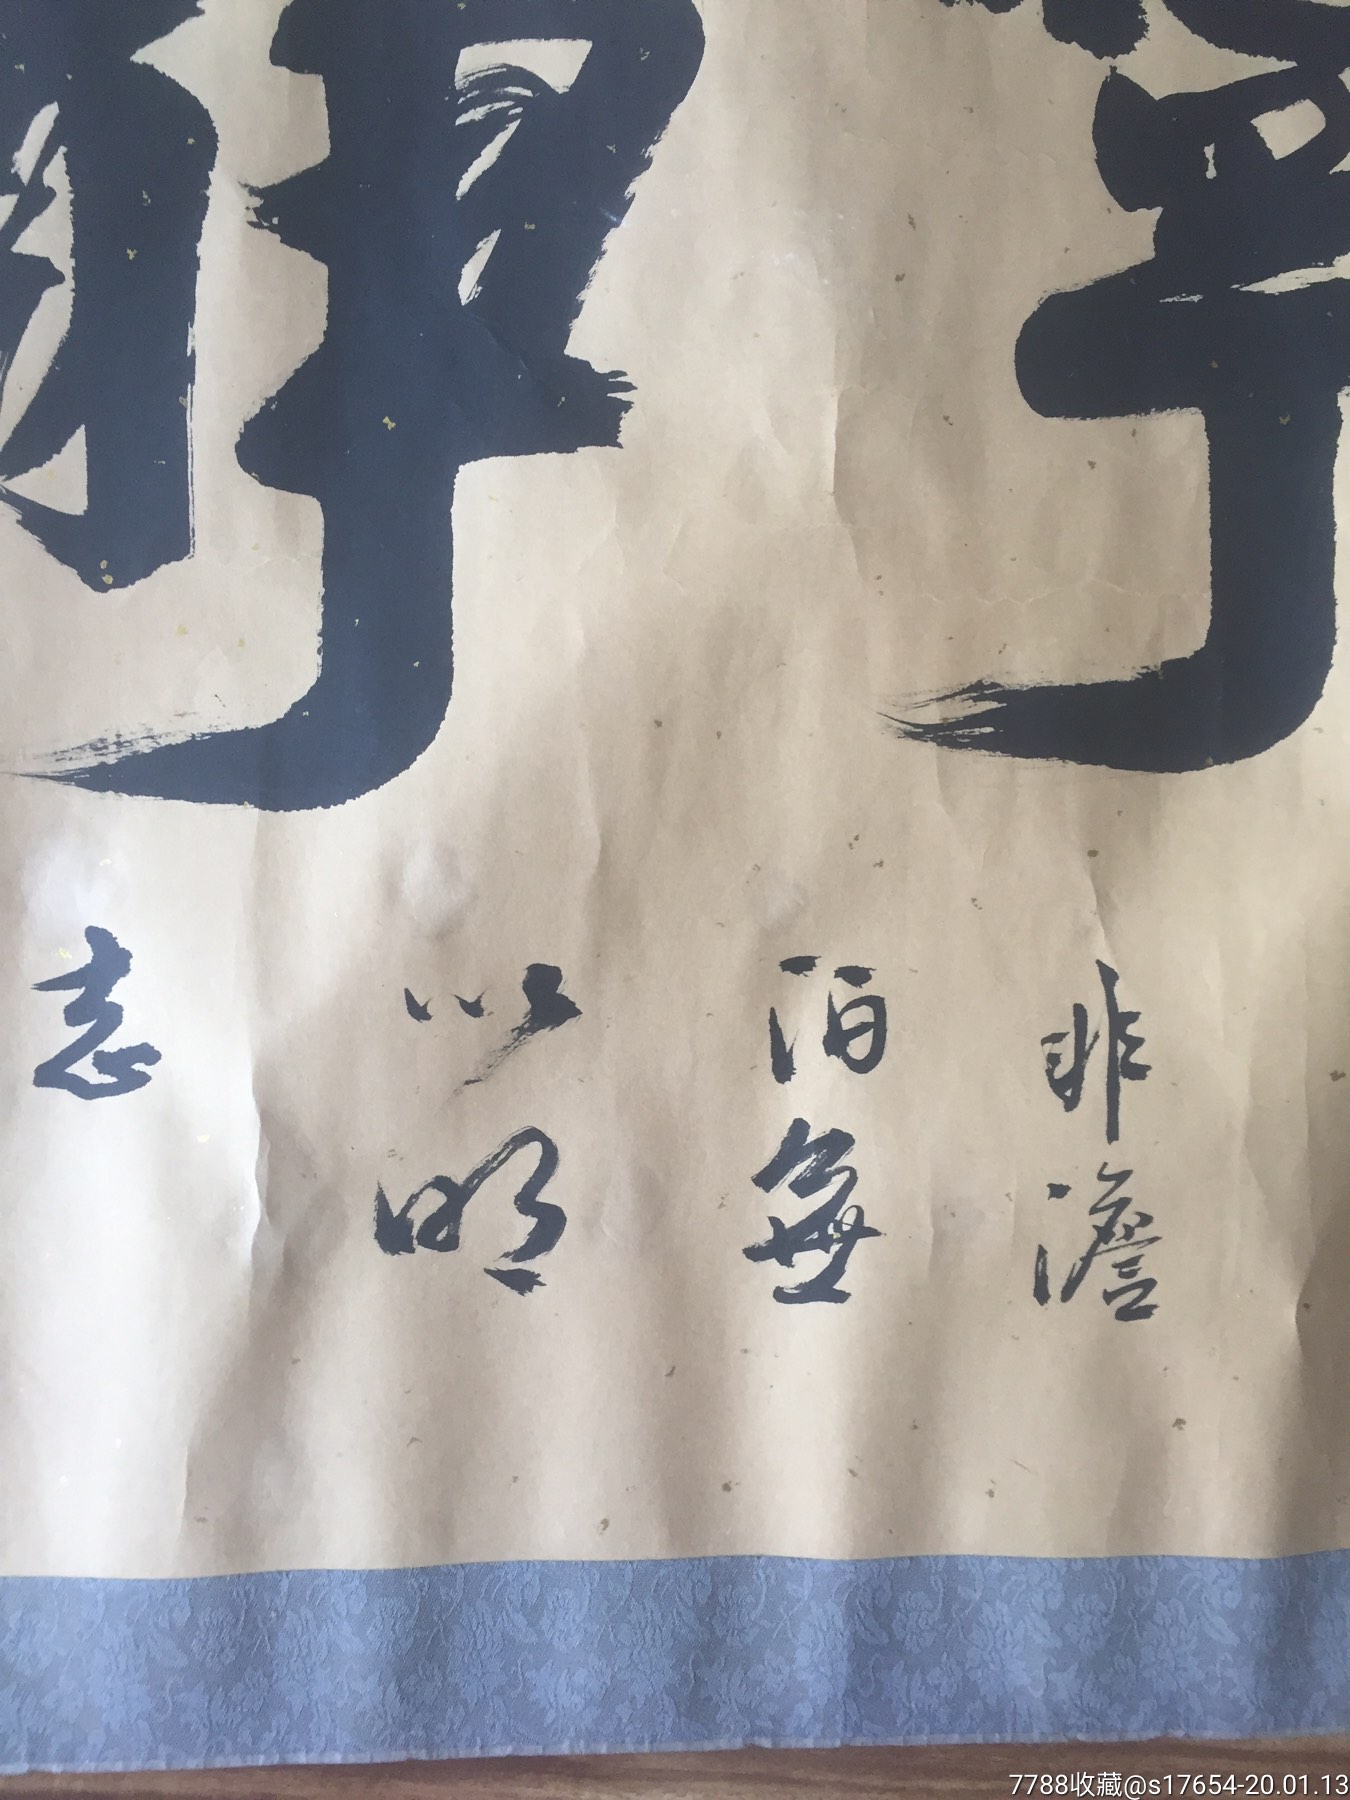 寧靜
非澹
泊無
以明
志
7788收藏@s17654-20.01.13